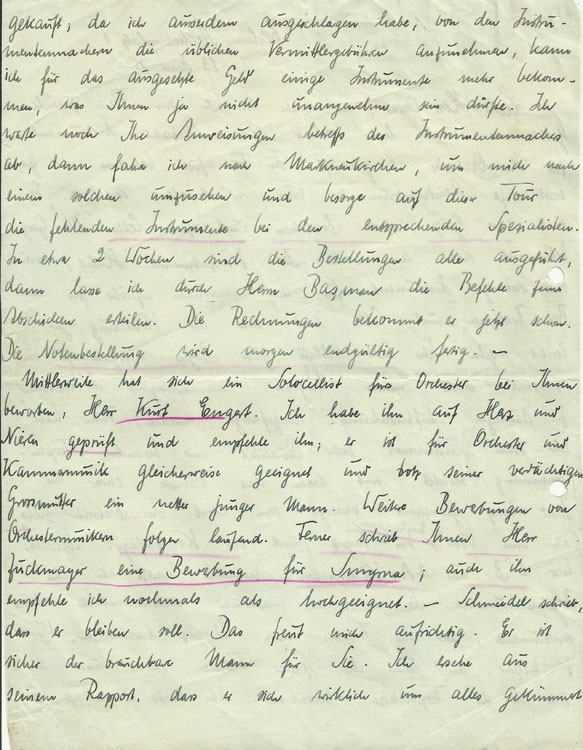 gekauft; da ich ausserdem ausgeschlagen habe, von den Instru-
mentenmachern die üblichen Vermittlergebühren anzunehmen, kann
ich für das ausgesetzte Geld einige Instrumente mehr bekom-
men, was Ihnen ja nicht unangenehm sein dürfte. Ich
warte noch Ihre Anweisungen betreffs des Instrumentenmachers
ab, dann fahre ich nach Markneukirchen, um mich nach
einem solchen umzusehen und besorge auf dieser Tour
die fehlenden Instrumente bei den entsprechenden Spezialisten.
In etwa 2 Wochen sind die Bestellungen alle ausgeführt,
dann lasse ich durch Herrn Başman die Befehle zum
Abschicken erteilen. Die Rechnungen bekommt er jetzt schon.
Die Notenbestellung wird morgen endgültig fertig. —
Mittlerweile hat sich ein Solocellist fürs Orchester bei Ihnen
beworben, Herr Kurt Engert. Ich habe ihn auf Herz und
Nieren geprüft und empfehle ihn; er ist für Orchester und
Kammermusik gleicherweise geeignet und trotz seiner verdächtigen
Grossmutter ein netter junger Mann. Weitere Bewerbungen von
Orchestermusikern folgen laufend. Ferner schrieb Ihnen Herr
Zuckmayer eine Bewerbung für Smyrna; auch ihn
empfehle ich nochmals als hochgeeignet. — Schmeidel schrieb,
dass er bleiben soll. Das freut mich aufrichtig. Er ist
sicher der brauchbare Mann für Sie. Ich ersehe aus
seinem Rapport, dass er sich wirklich um alles gekümmert